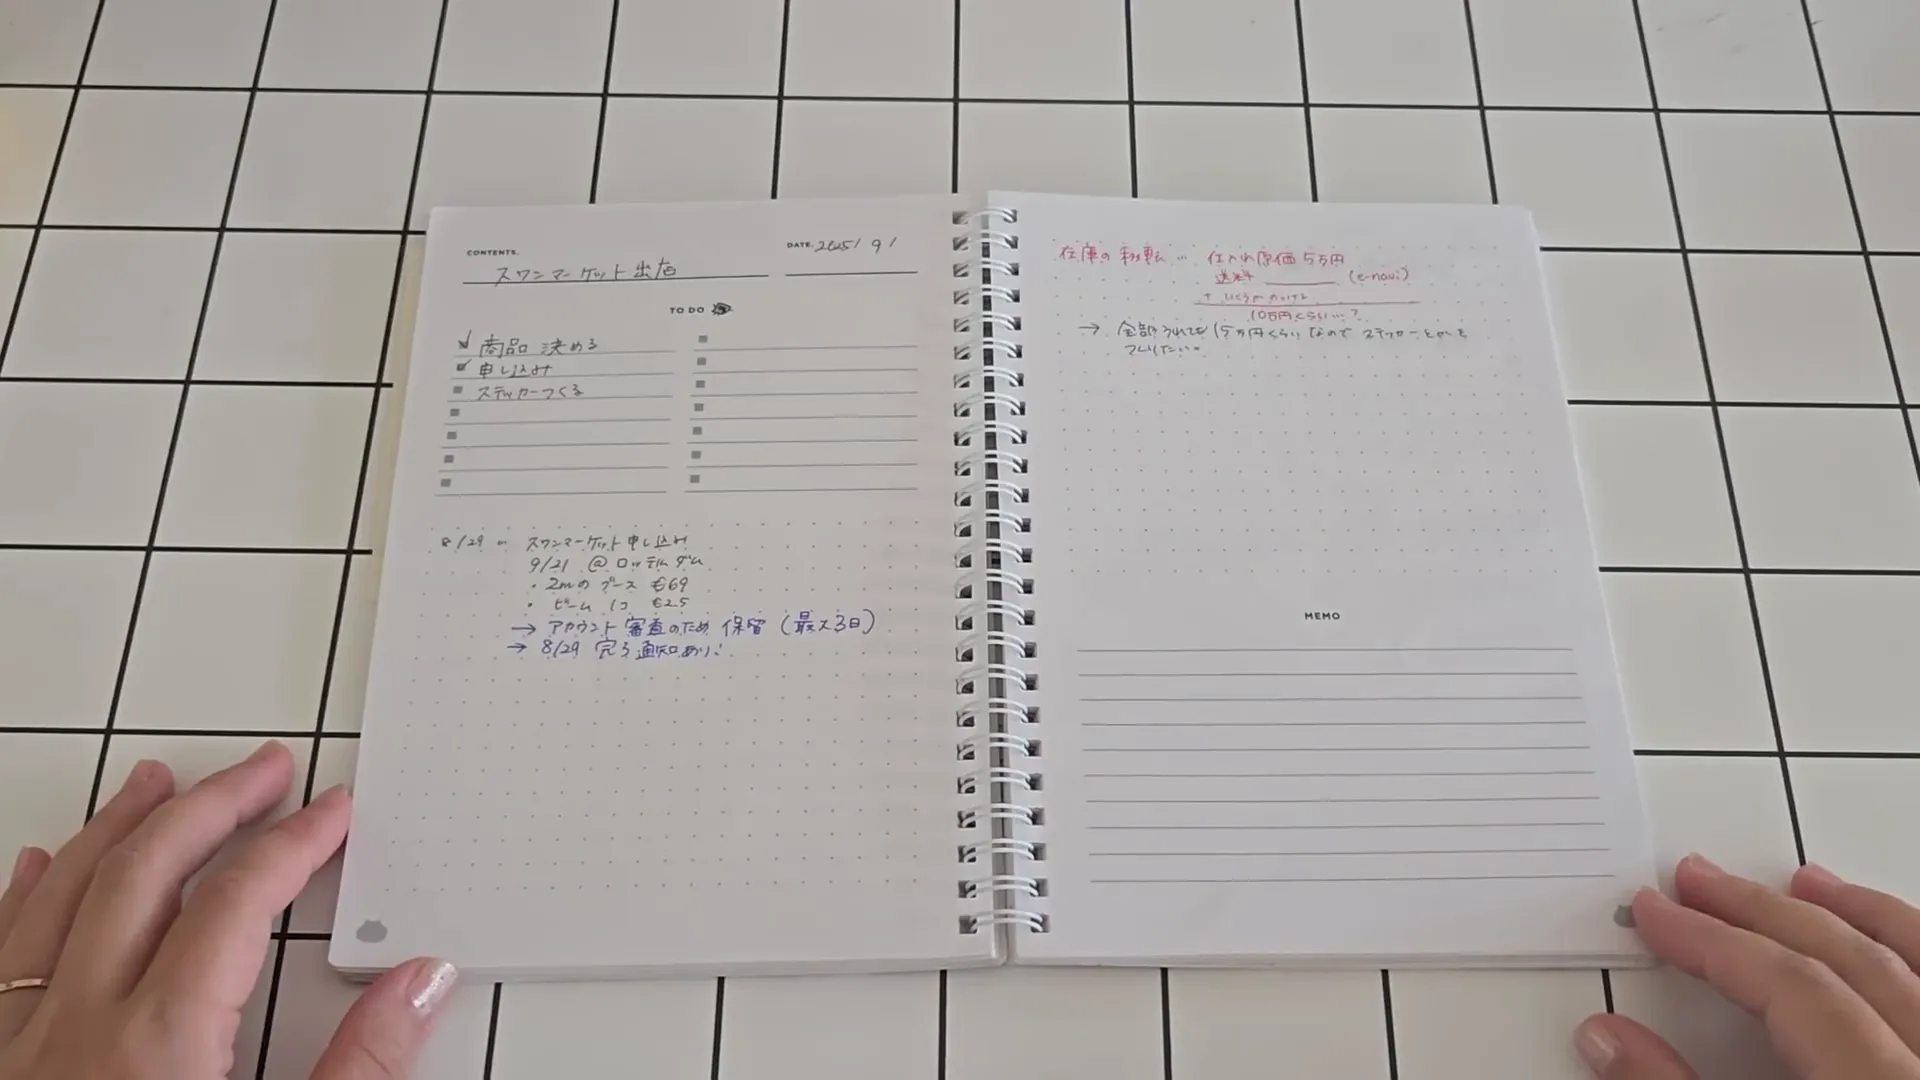 CONTENTS.
スワンマーケット出店
DATE. 2025/ 9/
TO DO
商品 決める
申し込み
ステッカーつくる
8/29 … スワンマーケット申し込み
9/21 @ロッテルダム
・2mのブース €69
・ビーム 1コ €2.5
→ アカウント審査のため 保留 (最大3日)
→ 8/29 完了通知あり!
在庫の移転… 仕入れ原価 5万円
送料 (e-navi)
+ いくらかかける
10万円くらい…?
→ 全部うれても 15万円くらいなので ステッカーとかも
つくりたい。
MEMO